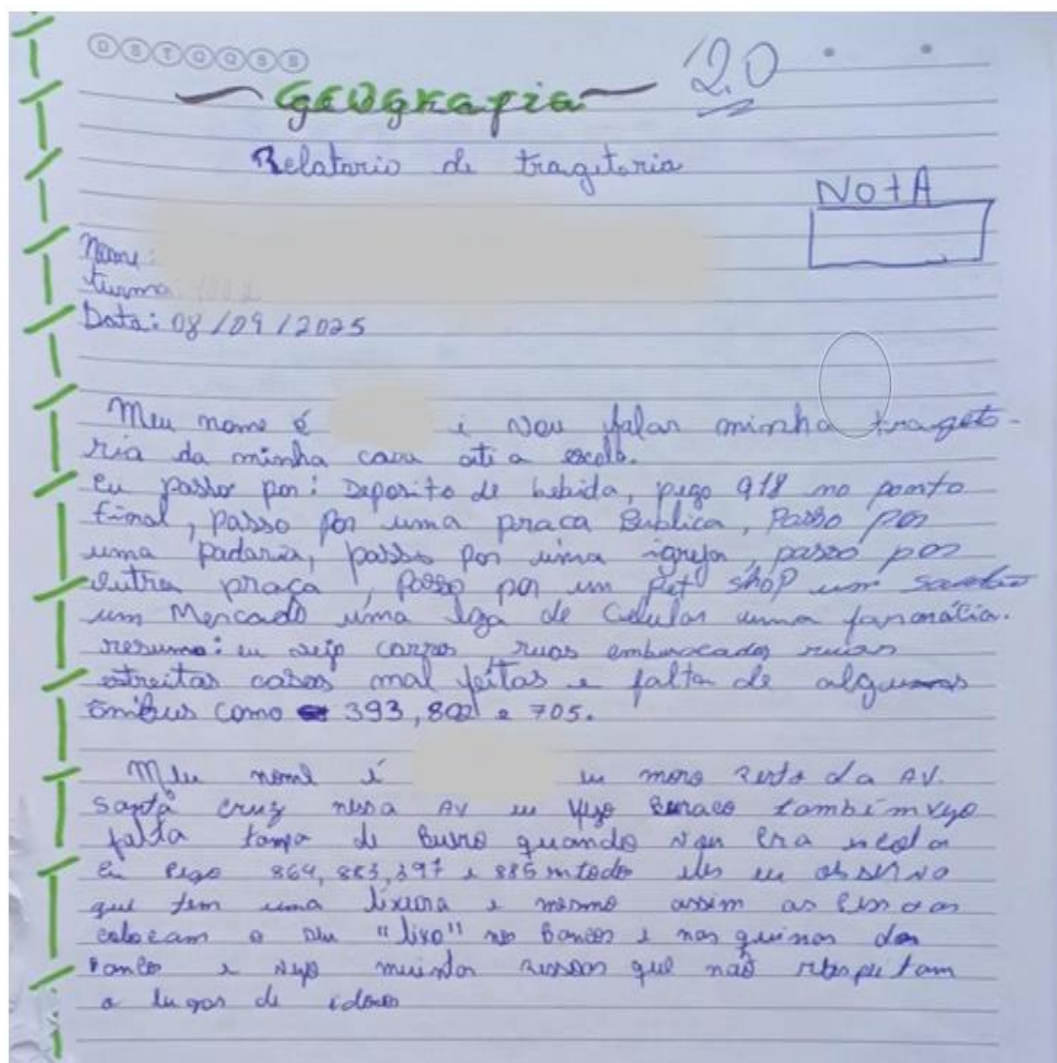 D S T Q Q S S
2.0
Geografia
Relatorio de tragetoria
NOtA
Nome:
turma:
Data: 08/09/2025
Meu nome é i vou falar minha trageto-
ria da minha casa ati a escola.
Eu passo por: Deposito de bebida, pego 918 no ponto
final, passo por uma praca Publica, Passo por
uma padaria, passo por uima igreja, passo por
outra praça, Passo por um Pet shop um
um Mercado uma loga de Celular uma farmácia.
resumo: eu vejo carros, ruas emburacadas ruas
estreitas casas mal feitas e falta de algumas
ônibus como 393, 802 e 705.
Meu nome é eu moro Perto da AV.
Santa Cruz nessa AV eu vejo Buraco também vejo
falta tampa de Buero quando vou Pra escola
Eu Pego 864, 883, 397 e 885 m todos eles eu observo
que tem uma lixera e mesmo assim as Pessoas
colocam o seu "lixo" no Bancos e nas quinas dos
Banco e vejo muindas Pessoas que não respeitam
a lugar de idoso